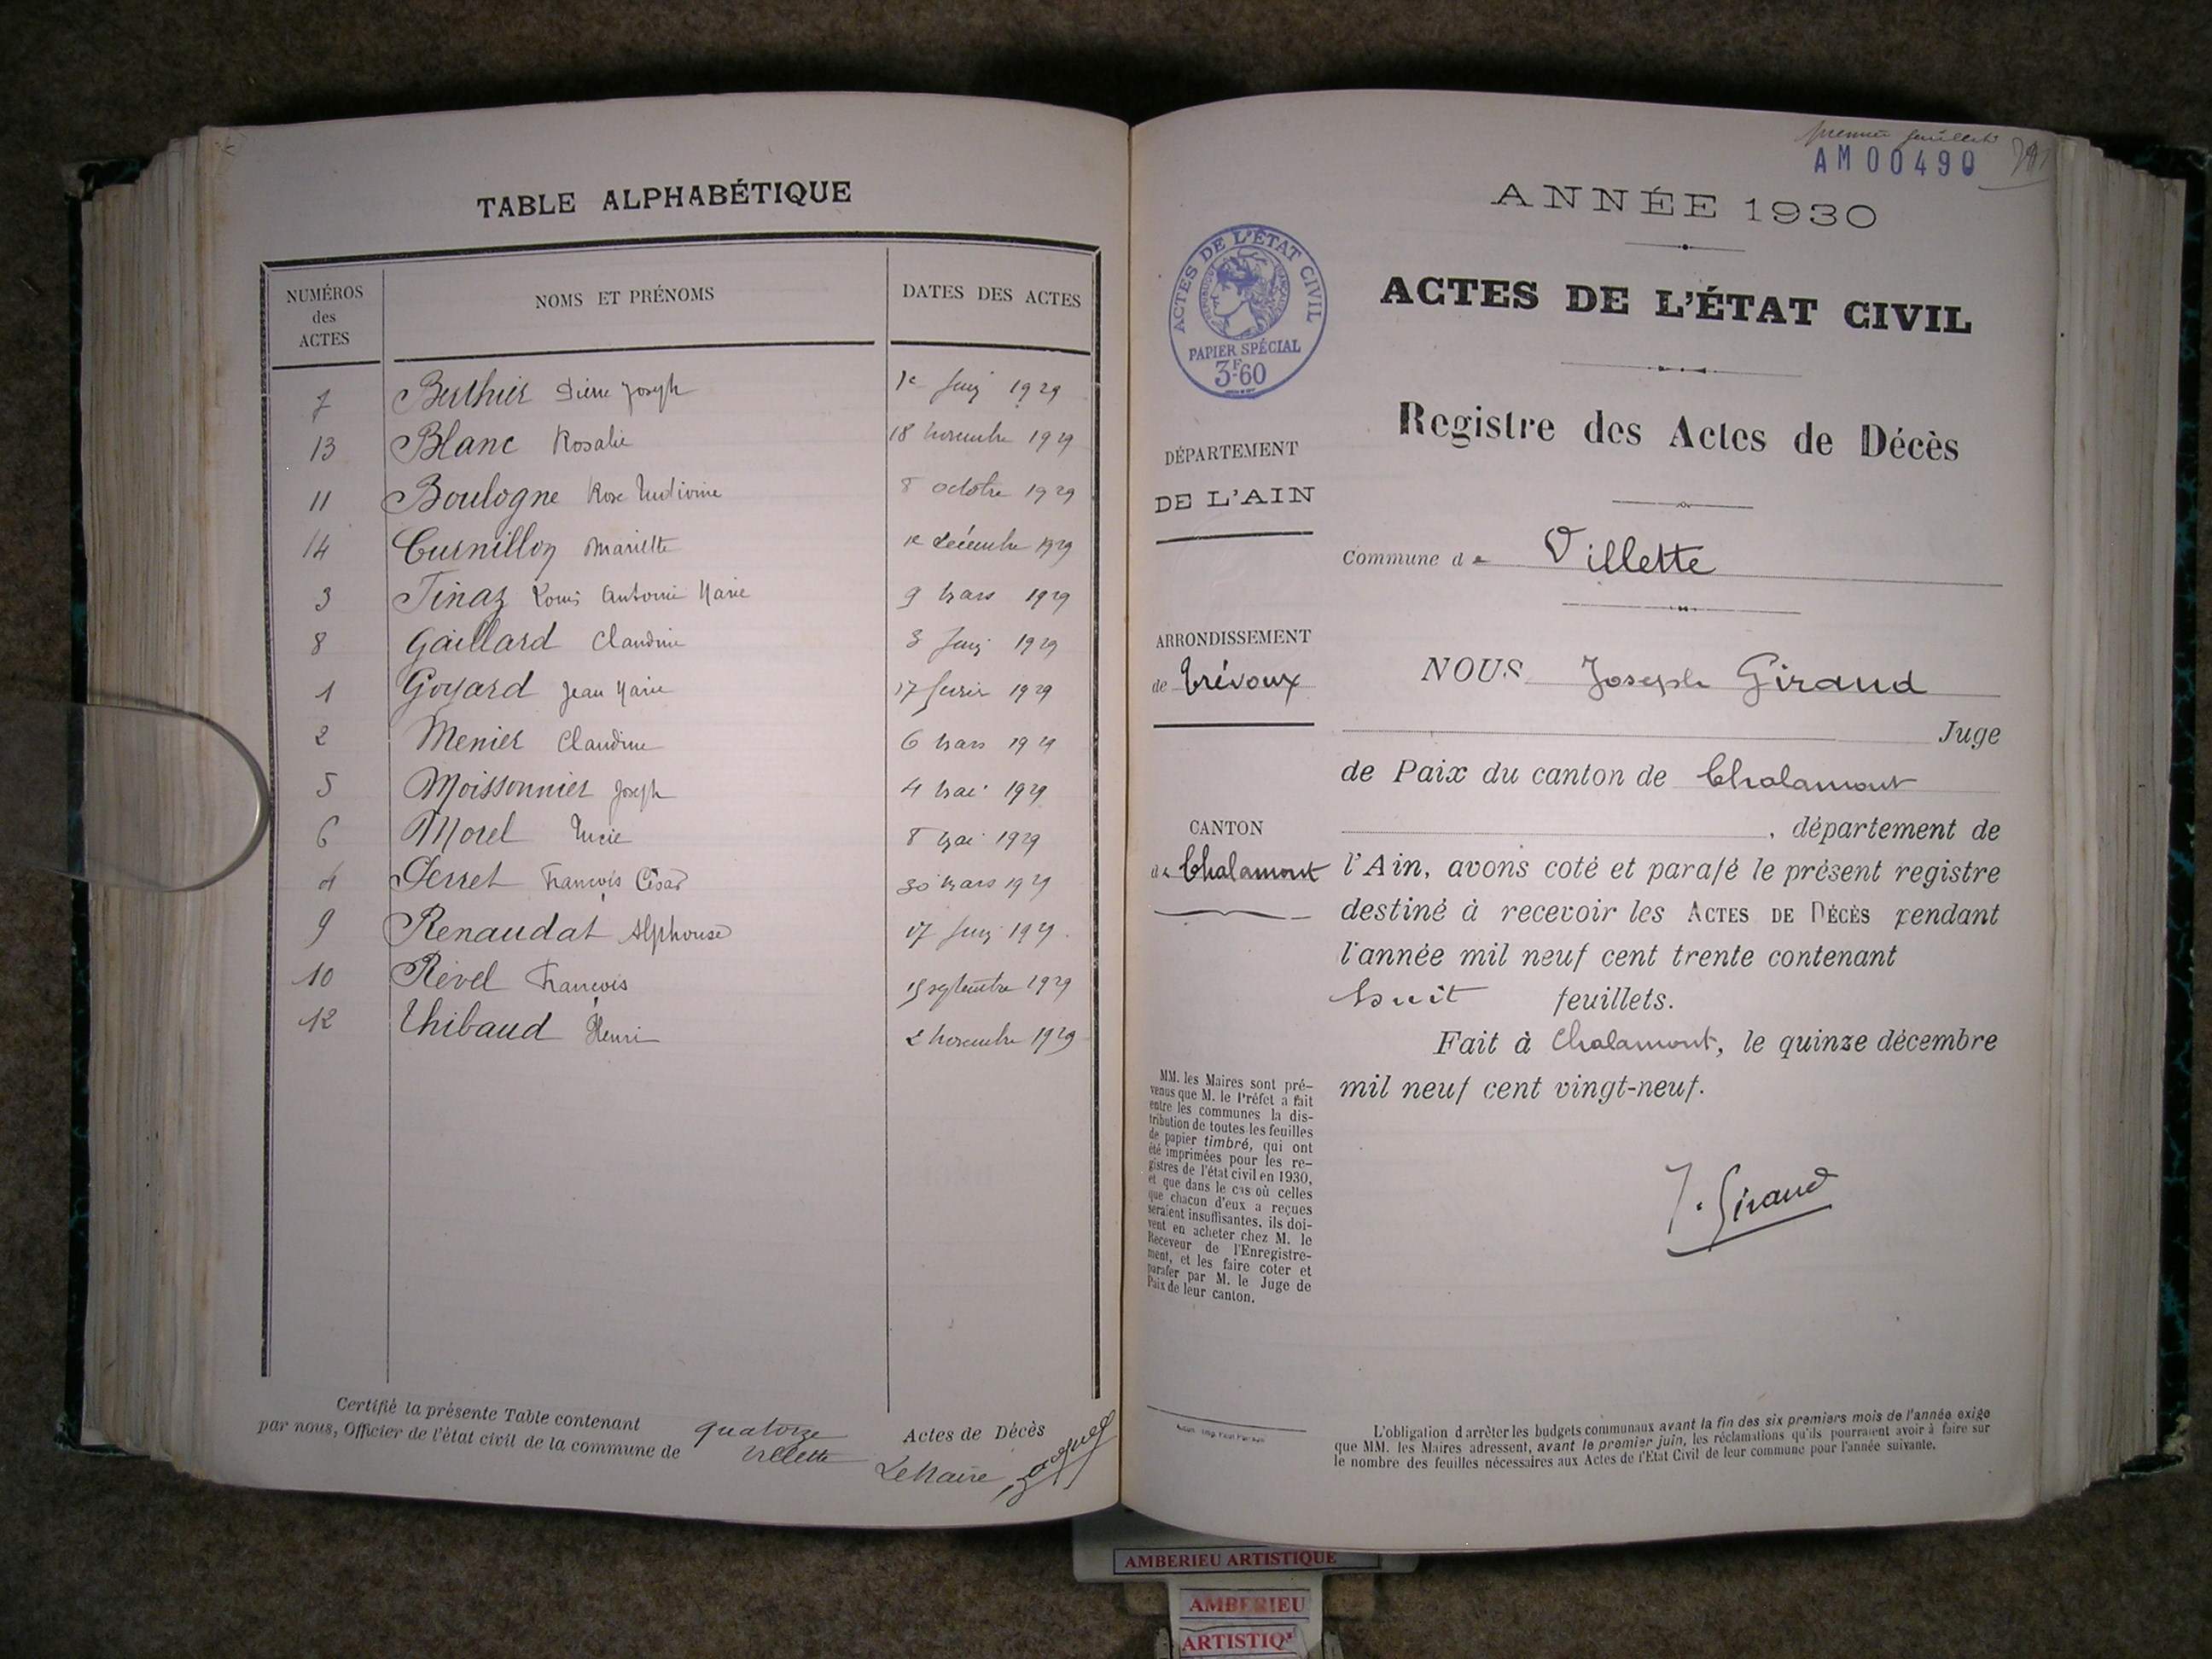 TABLE ALPHABÉTIQUE
NUMÉROS des ACTES NOMS ET PRÉNOMS DATES DES ACTES
7 Berthier Pierre Joseph 1e Juin 1929
13 Blanc Rosalie 18 novembre 1929
11 Boulogne Rose 8 octobre 1929
14 Curnillon Mariette 1e décembre 1929
3 Finaz Louis Antoine Marie 9 mars 1929
8 Gaillard Claudine 3 Juin 1929
1 Goyard Jean Marie 17 février 1929
2 Menier Claudine 6 mars 1929
5 Moissonnier Joseph 4 mai 1929
6 Morel Lucie 8 mai 1929
4 Perret François César 30 mars 1929
9 Renaudat Alphonse 17 Juin 1929
10 Révol François 15 septembre 1929
12 Thibaud Henri 2 novembre 1929
Certifié la présente Table contenant quatorze Actes de Décès
par nous, Officier de l'état civil de la commune de Villette
Le Maire
premier feuillet
AM00490
ANNÉE 1930
ACTES DE L'ÉTAT CIVIL
PAPIER SPÉCIAL
3F60
ACTES DE L'ÉTAT CIVIL
Registre des Actes de Décès
DÉPARTEMENT
DE L'AIN
Commune de Villette
ARRONDISSEMENT
de Trévoux
CANTON
de Chalamont
NOUS Joseph Giraud
Juge
de Paix du canton de Chalamont
, département de
l'Ain, avons coté et parafé le présent registre
destiné à recevoir les ACTES DE DÉCÈS pendant
l'année mil neuf cent trente contenant
huit feuillets.
Fait à Chalamont, le quinze décembre
mil neuf cent vingt-neuf.
J. Giraud
MM. les Maires sont pré-
venus que M. le Préfet a fait
entre les communes la dis-
tribution de toutes les feuilles
de papier timbré, qui ont
été imprimées pour les re-
gistres de l'état civil en 1930,
et que dans le cas où celles
que chacun d'eux a reçues
seraient insuffisantes, ils doi-
vent en acheter chez M. le
Receveur de l'Enregistre-
ment, et les faire coter et
parafer par M. le Juge de
Paix de leur canton.
L'obligation d'arrêter les budgets communaux avant la fin des six premiers mois de l'année exige
que MM. les Maires adressent, avant le premier juin, les réclamations qu'ils pourraient avoir à faire sur
le nombre des feuilles nécessaires aux Actes de l'État Civil de leur commune pour l'année suivante.
AMBERIEU ARTISTIQUE
AMBERIEU
ARTISTIQ